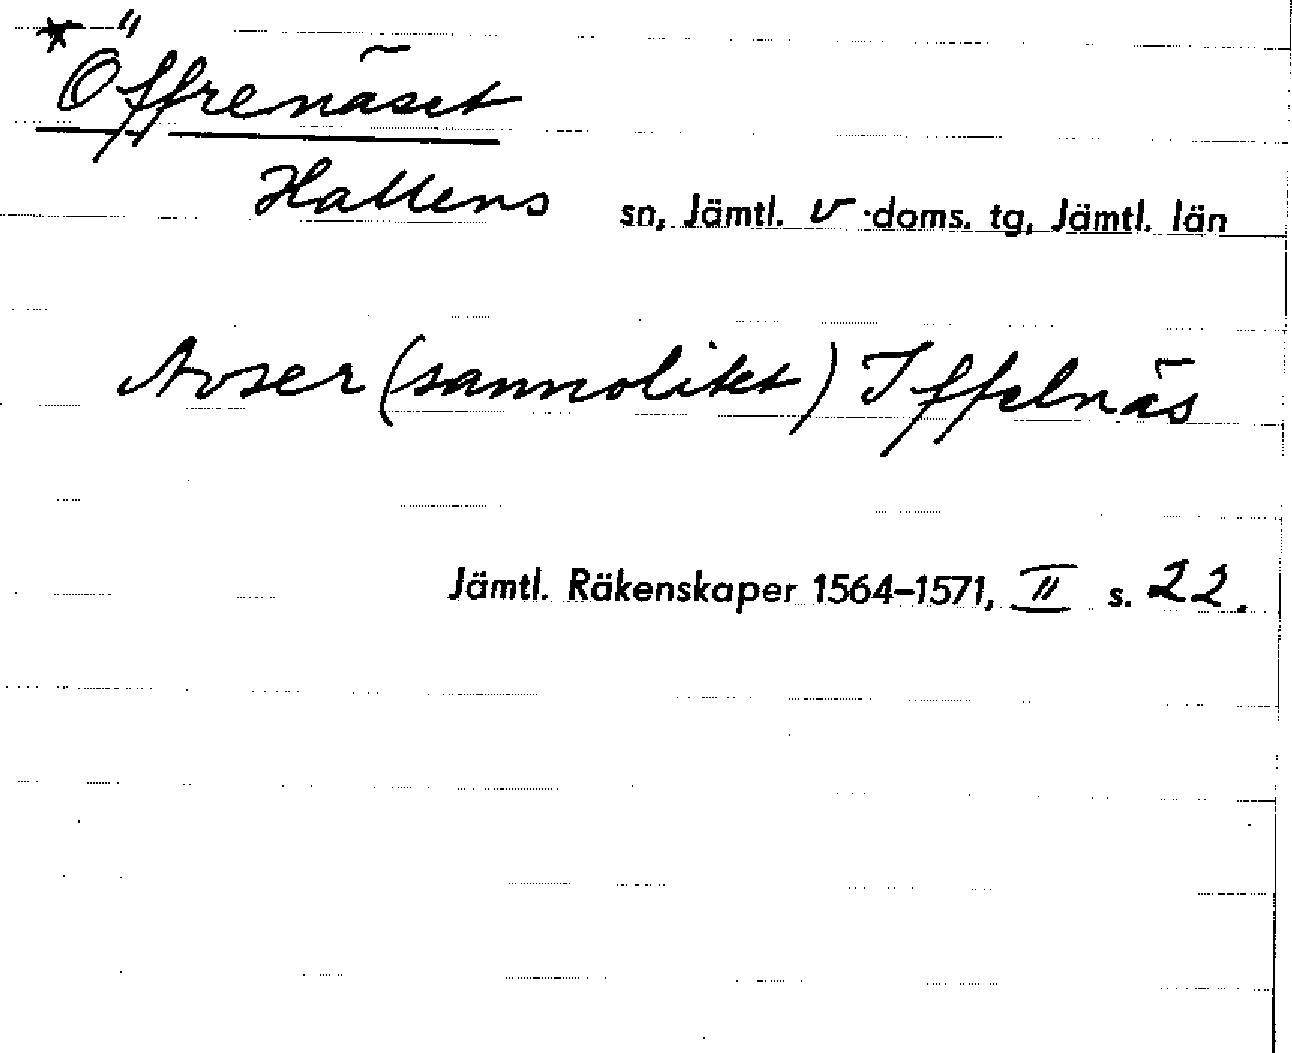 * Öffrenäset
Hallens sn, Jämtl. v ·doms. tg, Jämtl. län
Avser (sannolikt) Iffelnäs
Jämtl. Räkenskaper 1564–1571, II s. 22.